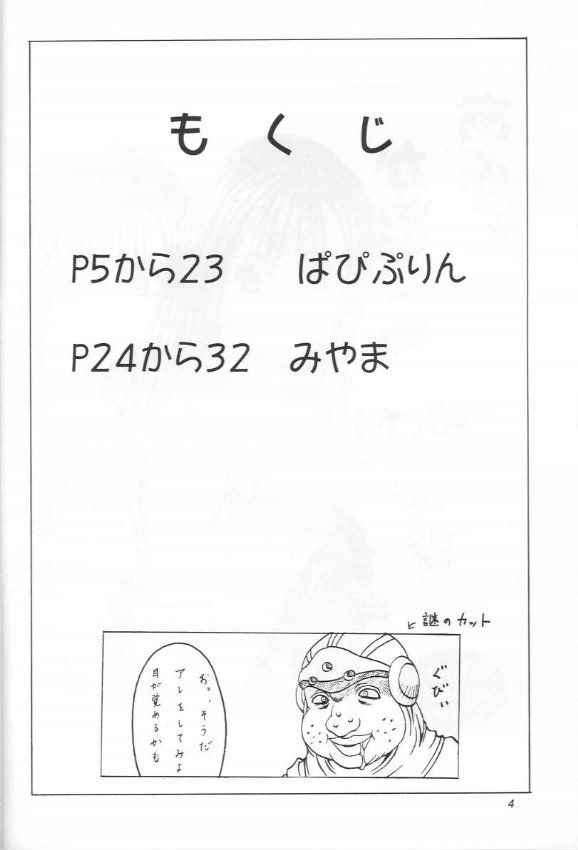 もくじ
P5から23　ぱぴぷりん
P24から32　みやま
謎のカット
ぐびぃ
お。、そうだ
アレをしてみよ
目が覚めるかも
4